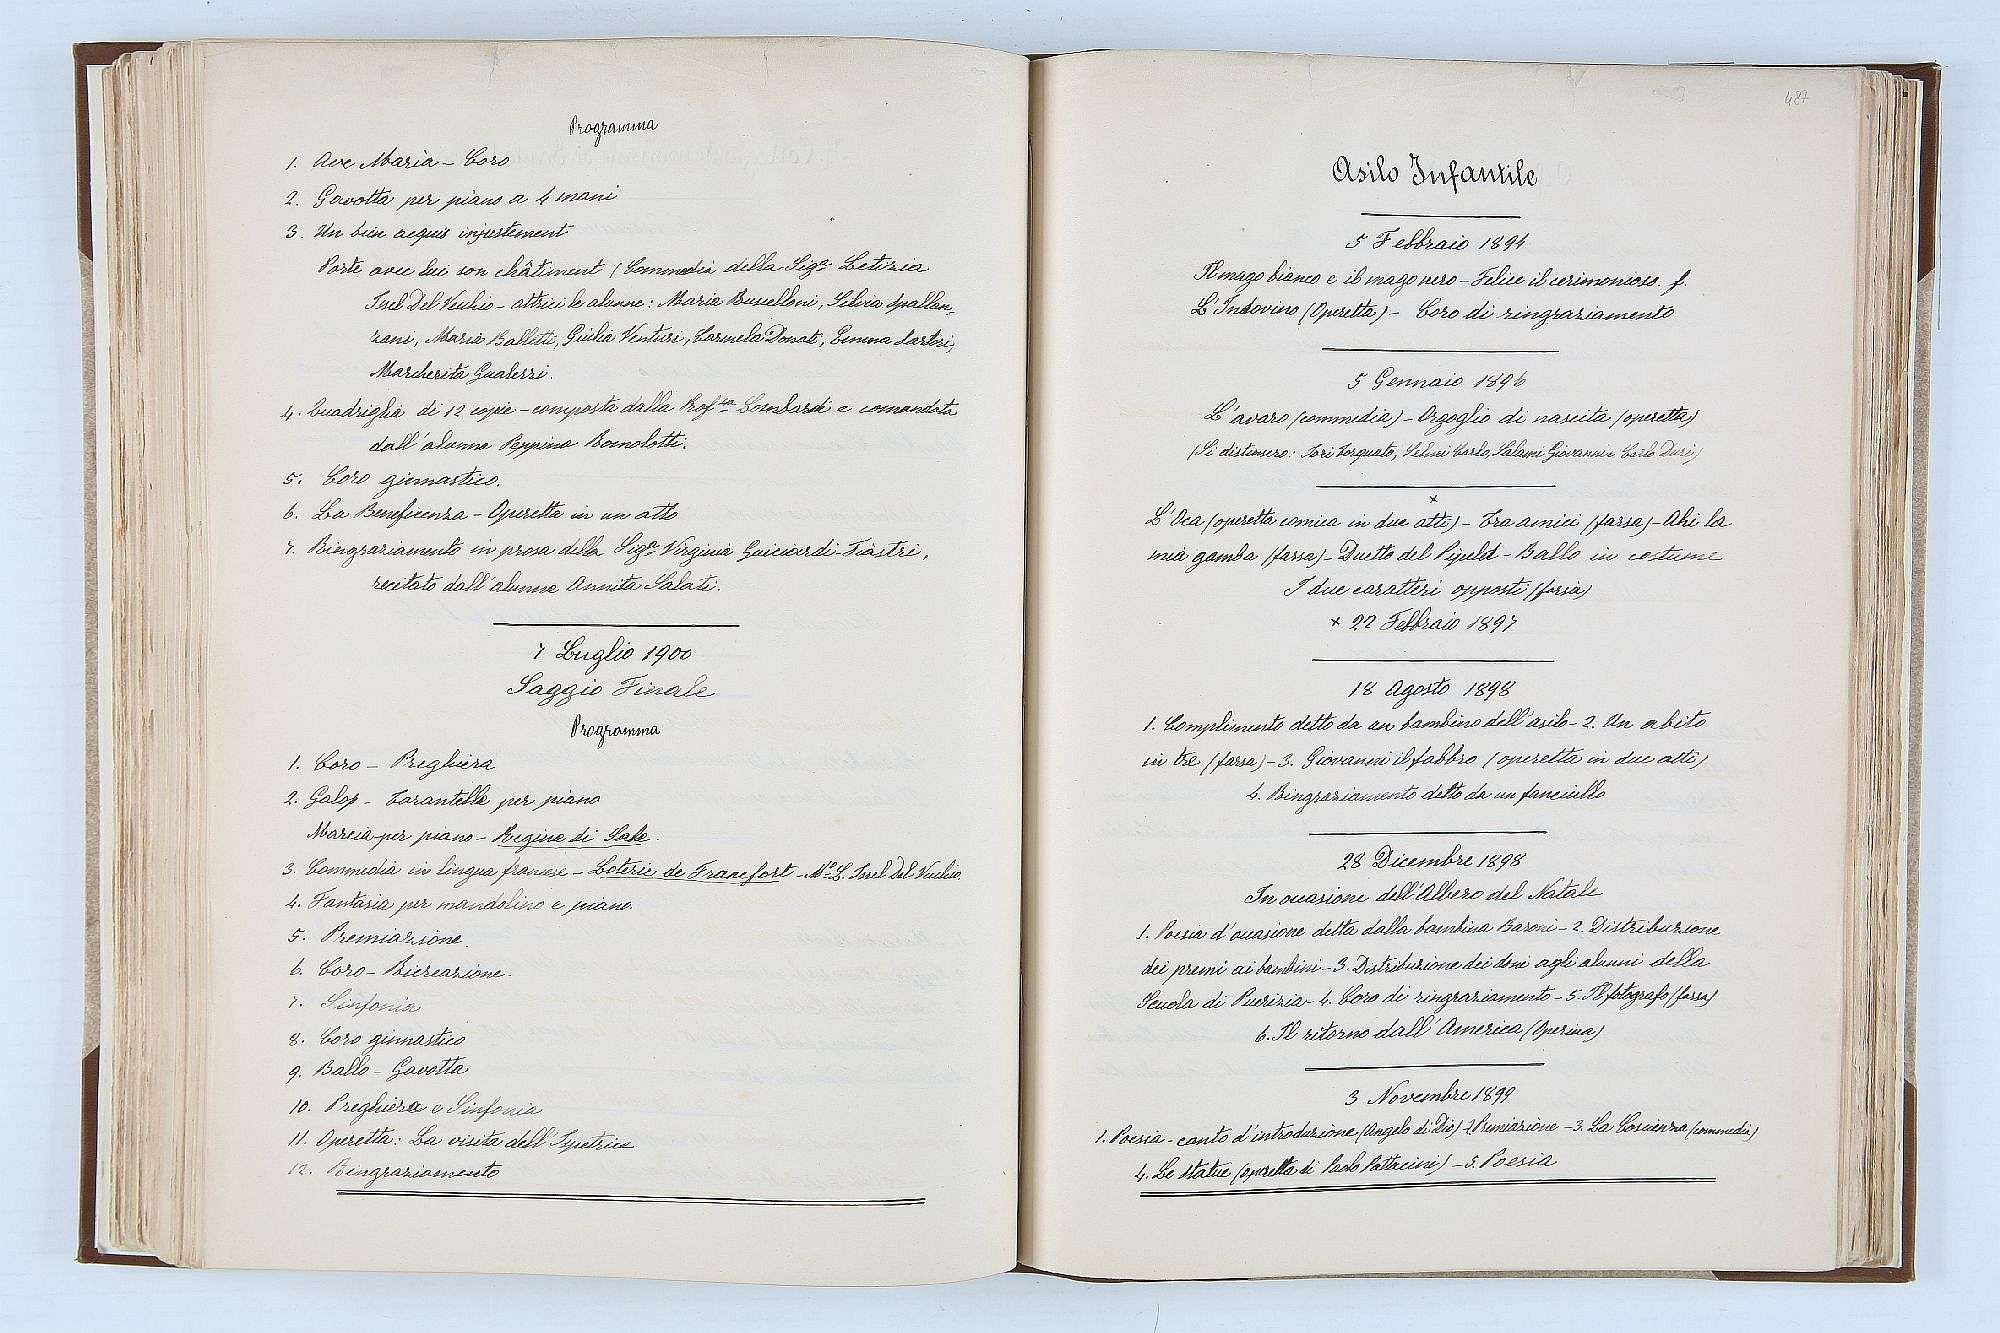 Programma
1. Ave Maria - Coro
2. Gavotta per piano a 4 mani
3. Un bien acquis injustement
Porte avec lui son châtiment (Commedia della Sigª Letizia
Isnel Del Vecchio - attrici le alunne: Maria Buscelloni, Silvia Spallan-
zani, Maria Balletti, Giulia Venturi, Carmela Donati, Emma Sartori,
Margherita Gualerzi.
4. Quadriglia di 12 copie - composta dalla Prof.ssa Lombardi e comandata
dall'alunna Peppina Bornolotti.
5. Coro ginnastico.
6. La Beneficenza - Operetta in un atto
7. Ringraziamento in prosa della Sigª Virginia Guicciardi-Fiastri,
recitato dall'alunna Annita Salati.
7 Luglio 1900
Saggio Finale
Programma
1. Coro - Preghiera
2. Galop - Tarantella per piano
Marcia per piano - Regina di Saba.
3. Commedia in lingua francese - Loterie de Francfort - Mª L. Isnel Del Vecchio.
4. Fantasia per mandolino e piano.
5. Premiazione.
6. Coro - Ricreazione.
7. Sinfonia
8. Coro ginnastico
9. Ballo - Gavotta
10. Preghiera e Sinfonia
11. Operetta: La visita dell'Ispetrice
12. Ringraziamento
487
Asilo Infantile
5 Febbraio 1894
Il mago bianco e il mago nero - Felice il cerimonioso. f.
L'Indovino (Operetta) - Coro di ringraziamento
5 Gennaio 1896
L'avaro (commedia) - Orgoglio di nascita (operetta)
(Si distinsero: Tori Torquato, Selmi Carlo, Salami Giovanni e Carlo Duri)
×
L'Oca (operetta comica in due atti) - Tra amici (farsa) - Ahi la
mia gamba (farsa) - Duetto del Pipelet - Ballo in costume
I due caratteri opposti (farsa)
× 22 Febbraio 1897
18 Agosto 1898
1. Complimento detto da un bambino dell'asilo - 2. Un abito
in tre (farsa) - 3. Giovanni il fabbro (operetta in due atti)
4. Ringraziamento detto da un fanciullo
28 Dicembre 1898
In occasione dell'Albero del Natale
1. Poesia d'occasione detta dalla bambina Baroni - 2. Distribuzione
dei premi ai bambini - 3. Distribuzione dei doni agli alunni della
Scuola di Puerizia - 4. Coro di ringraziamento - 5. Il fotografo (farsa)
6. Il ritorno dall'America (Operina)
3 Novembre 1899
1. Poesia - canto d'introduzione (Angelo di Dio) 2. Premiazione - 3. La Coscienza (commedia)
4. Le statue (operetta di Paolo Pattacini) - 5. Poesia